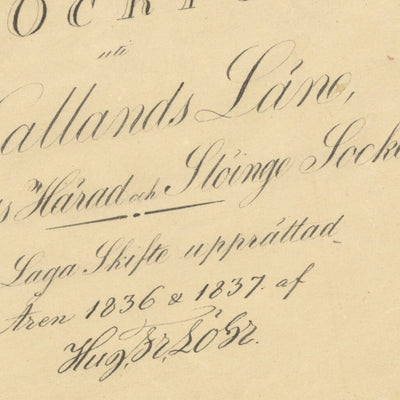 uti
Hallands Läne,
Härad och Slöinge Socken
Laga Skifte upprättad
Åren 1836 & 1837. af
Hug. Fr. Löhr.